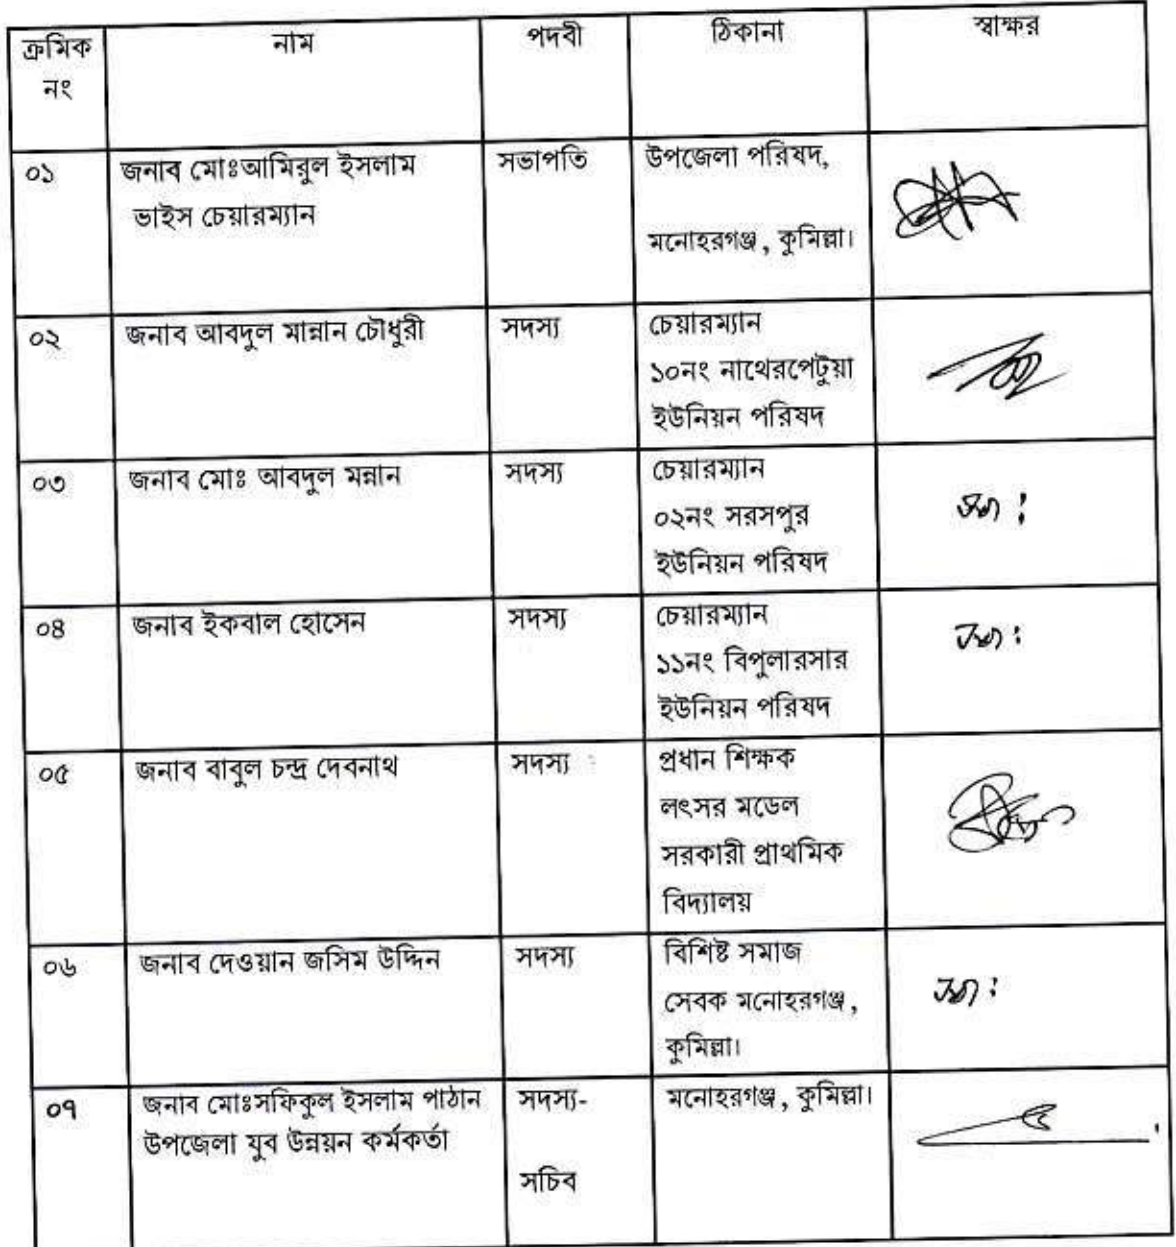 ক্রমিক নং	নাম	পদবী	ঠিকানা	স্বাক্ষর
০১	জনাব মোঃআমিরুল ইসলাম	সভাপতি	উপজেলা পরিষদ,
ভাইস চেয়ারম্যান
মনোহরগঞ্জ, কুমিল্লা।
০২	জনাব আবদুল মান্নান চৌধুরী	সদস্য	চেয়ারম্যান
১০নং নাথেরপেটুয়া
ইউনিয়ন পরিষদ
০৩	জনাব মোঃ আবদুল মন্নান	সদস্য	চেয়ারম্যান
০২নং সরসপুর
ইউনিয়ন পরিষদ
০৪	জনাব ইকবাল হোসেন	সদস্য	চেয়ারম্যান
১১নং বিপুলারসার
ইউনিয়ন পরিষদ
০৫	জনাব বাবুল চন্দ্র দেবনাথ	সদস্য	প্রধান শিক্ষক
লৎসর মডেল
সরকারী প্রাথমিক
বিদ্যালয়
০৬	জনাব দেওয়ান জসিম উদ্দিন	সদস্য	বিশিষ্ট সমাজ
সেবক মনোহরগঞ্জ,
কুমিল্লা।
০৭	জনাব মোঃসফিকুল ইসলাম পাঠান	সদস্য-	মনোহরগঞ্জ, কুমিল্লা।
উপজেলা যুব উন্নয়ন কর্মকর্তা
সচিব